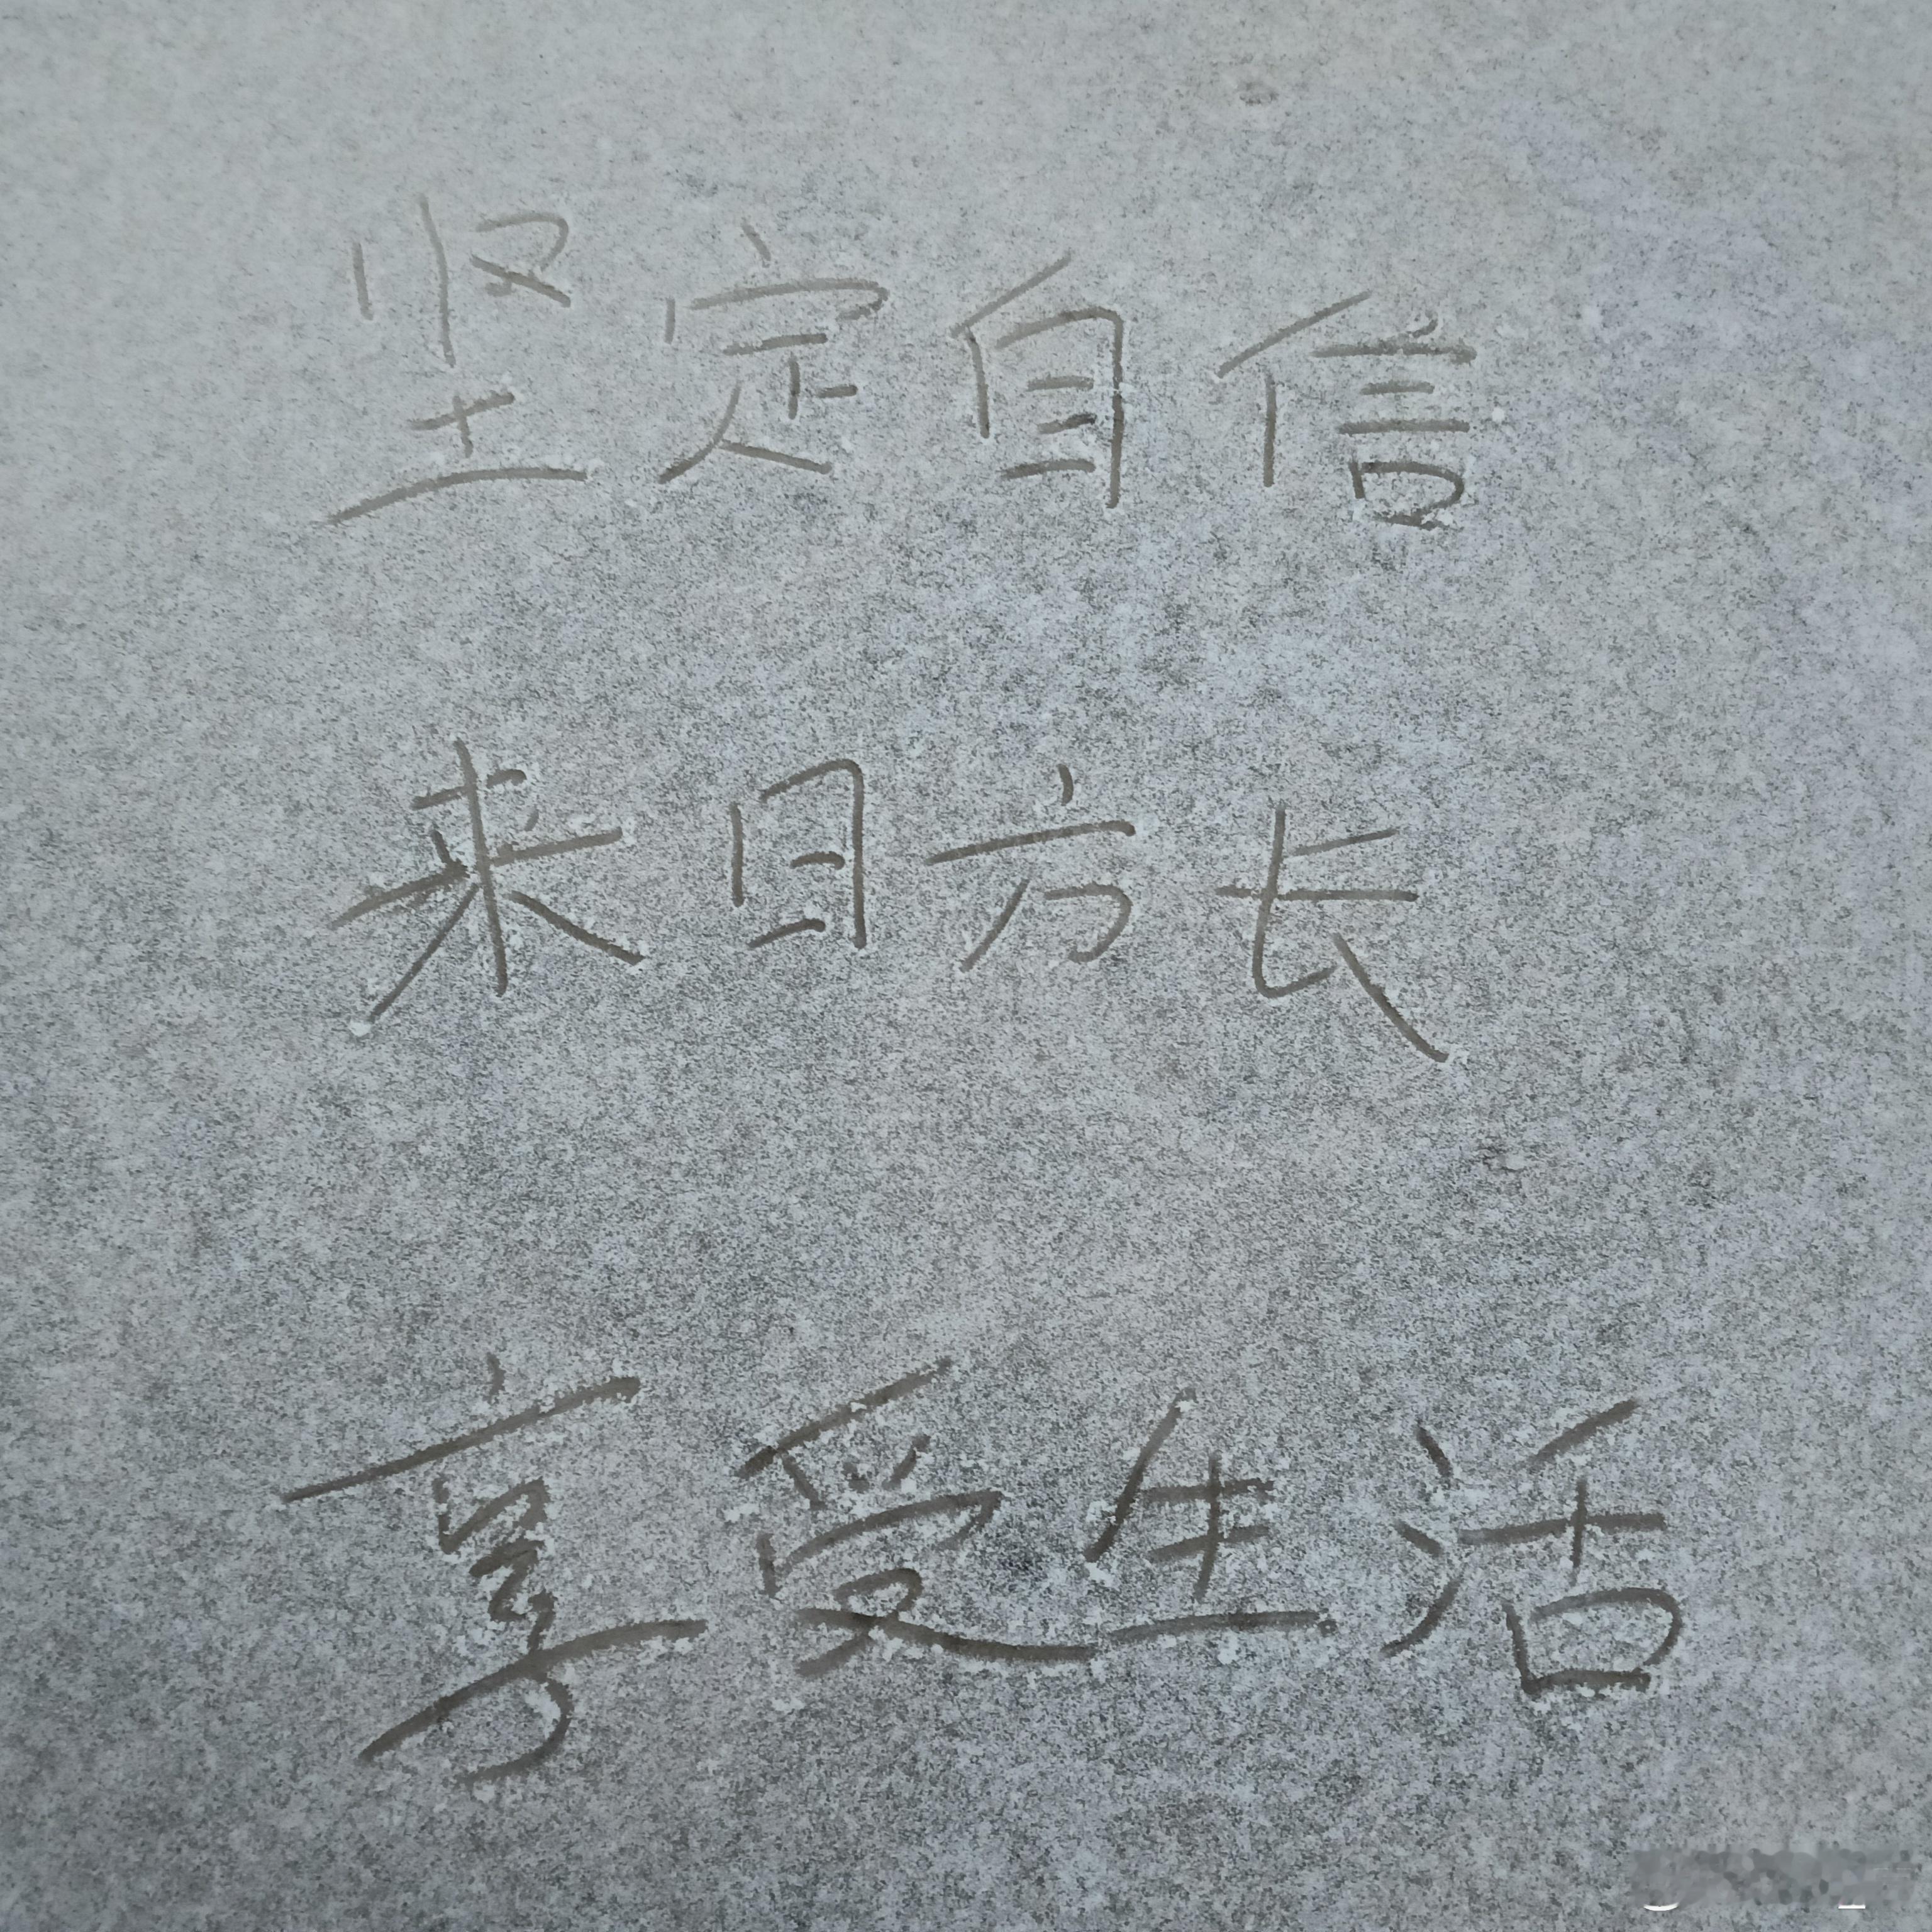 坚定自信
来日方长
享受生活